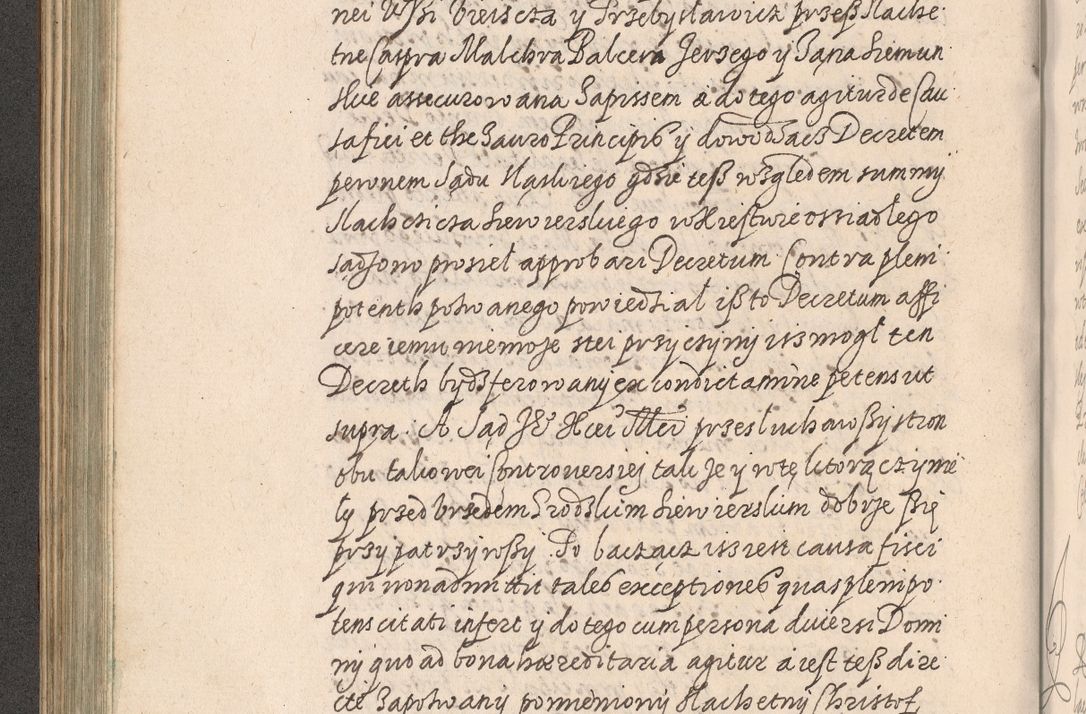 nei Wsi Vieiscza y Przebysławicz przeß Slache
tne Caspra Malchra Balcera Jerzego y Jana Siemun
skie assecurowana Zapissem a do tego agitur de Cau
sa fisci et thesauro Principis y dowodzacz Decretem
pewnem Sądu Sląskiego gdzie teß względem summy
Slachcicza Siewierskiego w Xiestwie ossiadłego
sądzono prosieł approbari Decretum Contra pleni
potenth pozwanego powiedział ißto Decretum affi
cere iemu niemoże stei przyczyny isz mogł ten
Decreth bydz ferowany ex condictamine petens ut
supra. A Sąd przesłuchawßy stron
obu takowei Controversiej tak Je y w tę ktorą czynie
ły przed Vrzedem Grodskim Siewierskim dobrze ßię
przypatrzywßy. Po baczącz isz iest causa fisci
qui non admittit tales exceptiones quas plenipo
tens citati infert y do tego cum persona diversi Domi
ny quo ad bona hæreditaria agitur a iest teß dire
cte Zapozwany pomieniony Slachetny Christof